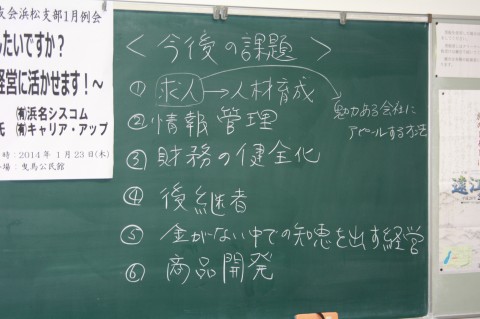 友会浜松支部1月例会
したいですか?
経営に活かせます!~
㈲浜名シスコム
氏 ㈲キャリア・アップ
時:2014年1月23日(木)
場:曳馬公民館
<今後の課題>
① 求人→人材育成
魅力ある会社に
アピールする方法
② 情報管理
③ 財務の健全化
④ 後継者
⑤ 金がない中での知恵を出す経営
⑥ 商品開発